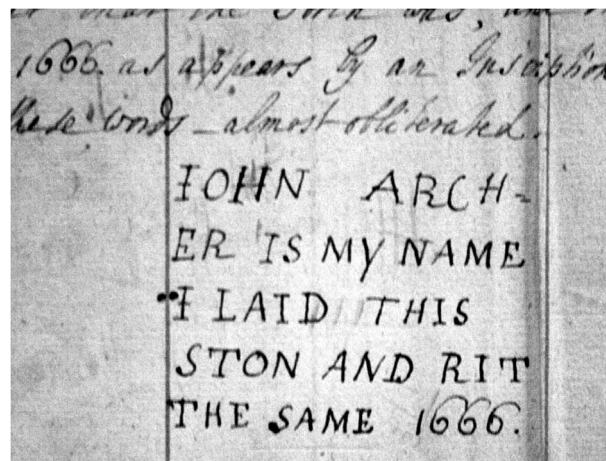 than the
1666. as appears by an Inscription
these words - almost obliterated.
IOHN ARCH-
ER IS MY NAME
I LAID THIS
STON AND RIT
THE SAME 1666.